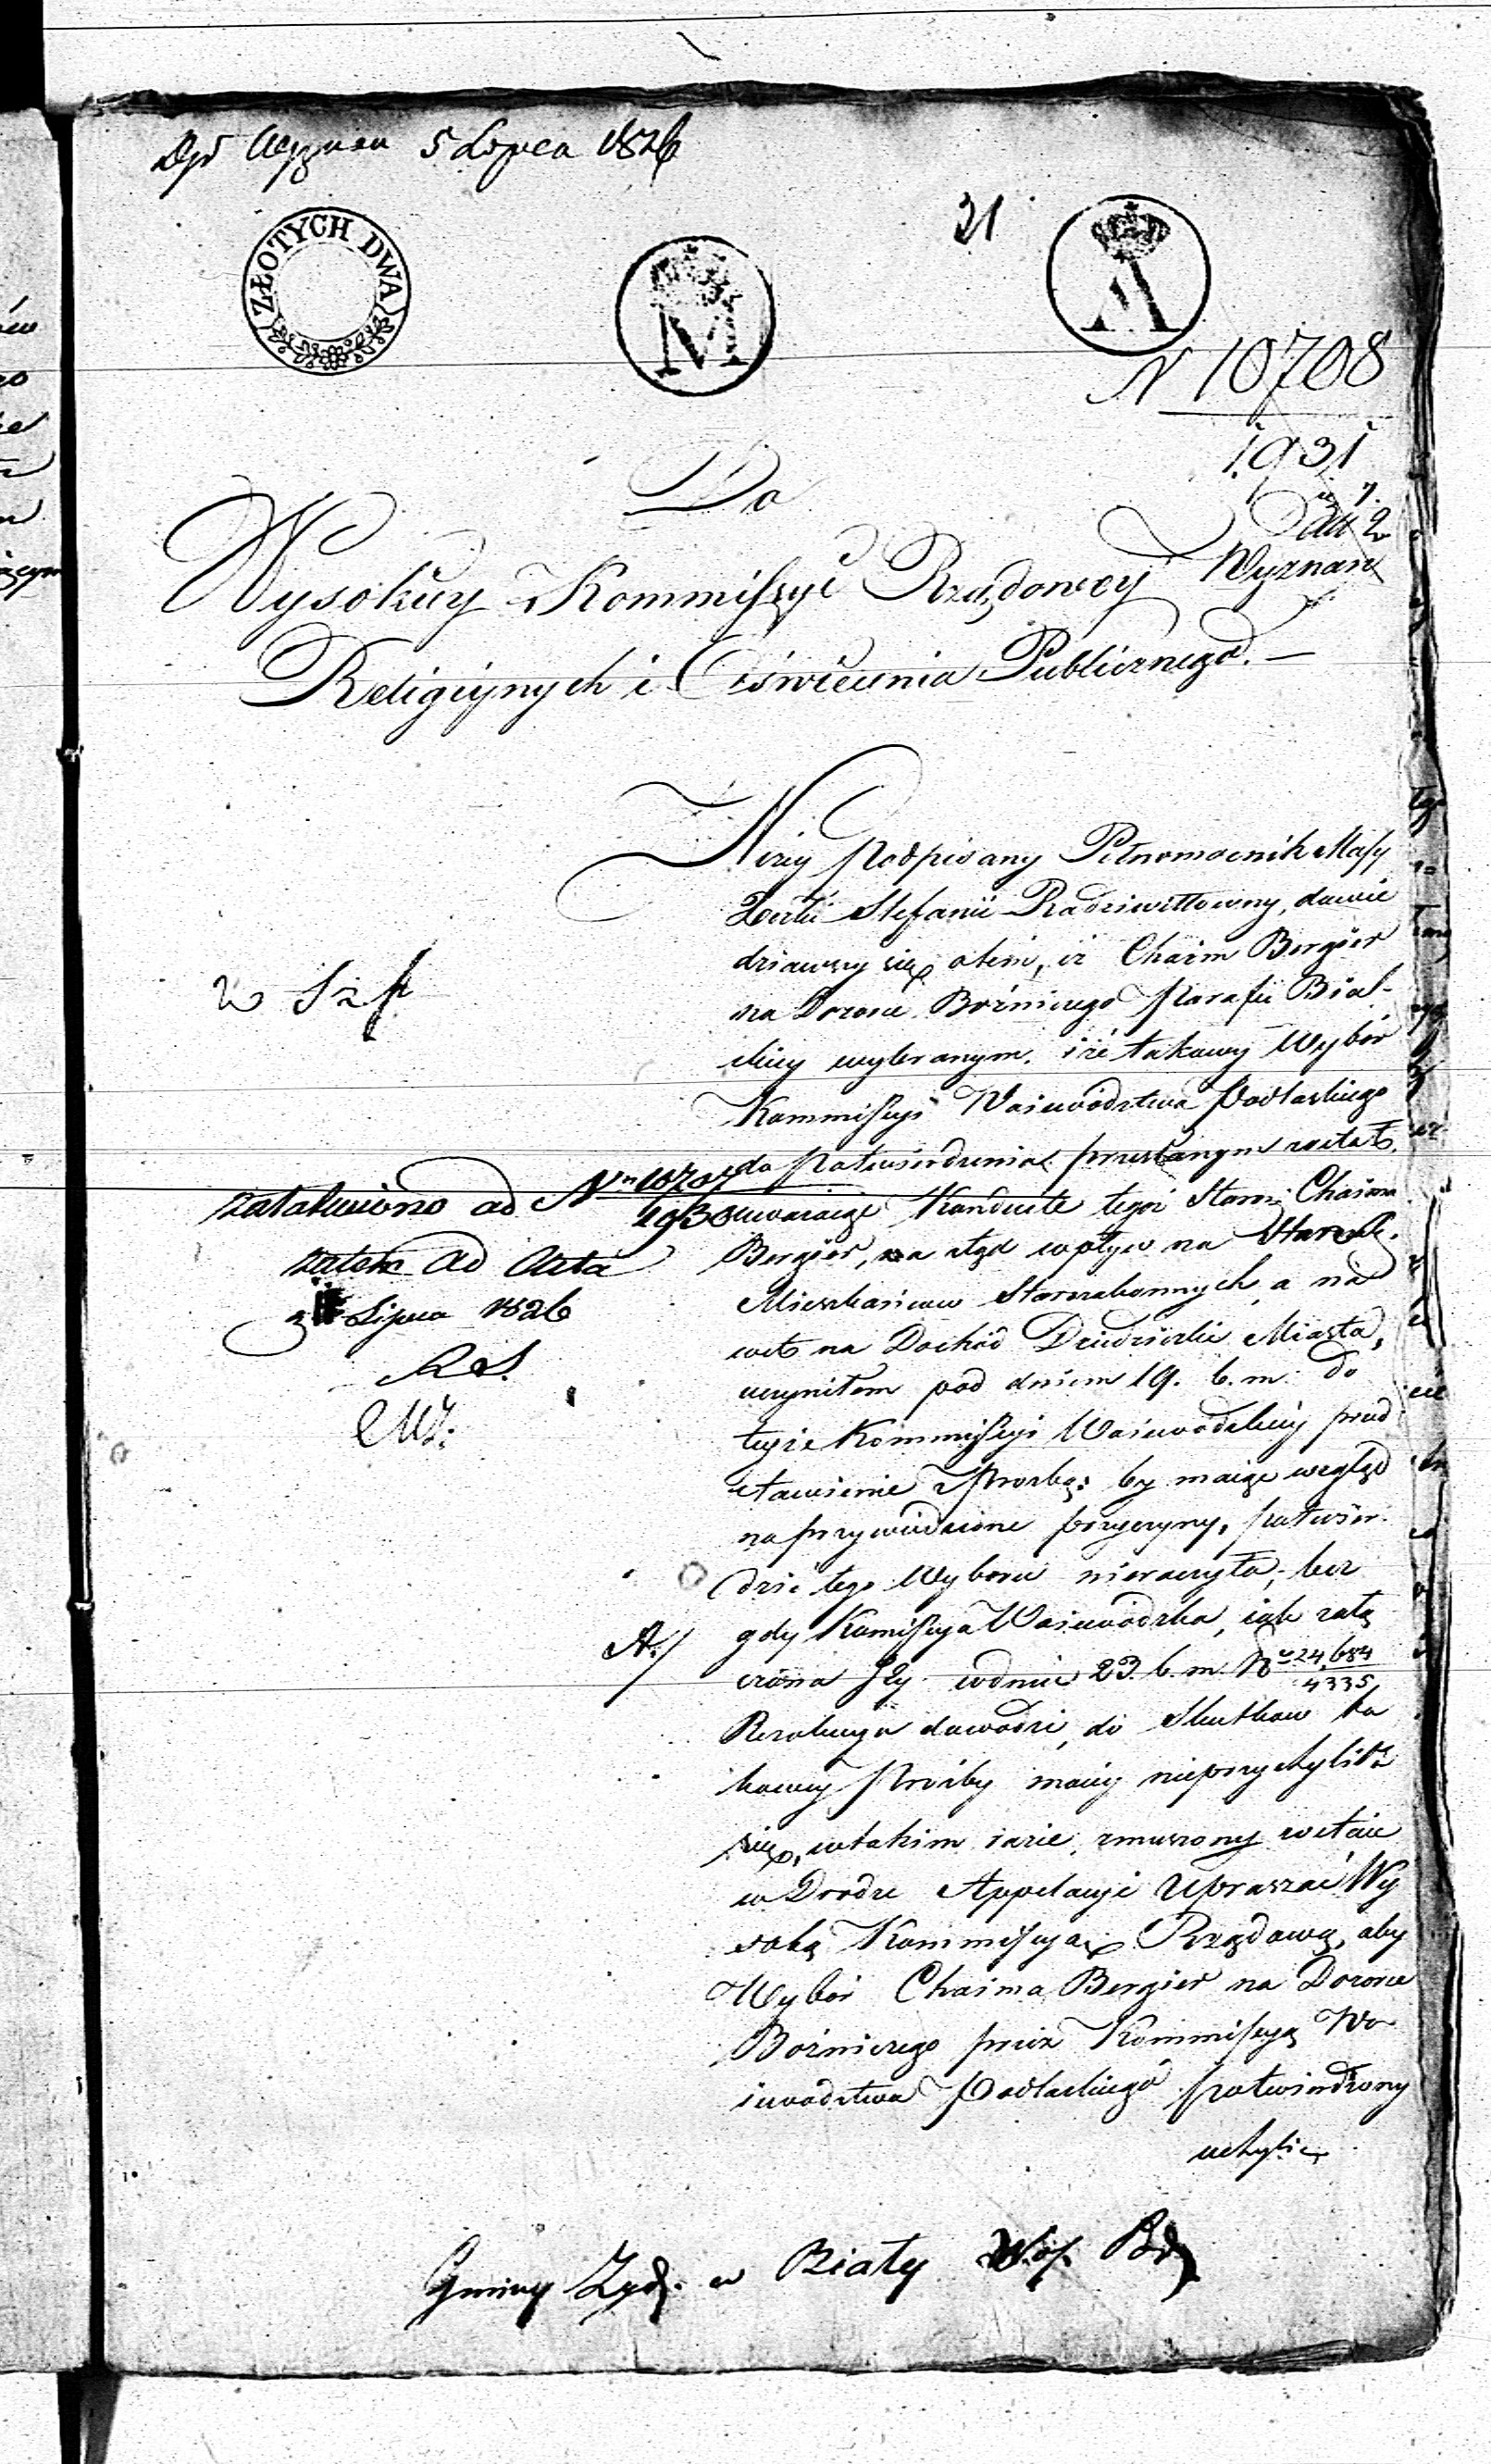 Wyznan 5 Lipca 1826
ZŁOTYCH DWA
M
A
31
N 10708
1931
Do
Wysokiey Kommissyi Rządowey Wyznań
Religiynych i Oświecenia Publicznego. —
Niżey podpisany Pełnomocnik Massy
Xcia Stefanii Radziwiłłowny, dowie
dziawszy się otém, iż Chaim Bergier
na Dozorcę Bożniczego Parafii Bial-
skiey wybranym. iże takowy Wybór
Kommissyi Woiewództwa Podlaskiego
do Potwierdzenia przesłanym został.
uważaiąc Konduite tegoż Staroz. Chaima
Bergier, na stąd wpływ na Staroz.
Mieszkańców Starozakonnych, a na
wet na Dochód Dziedziczki Miasta,
uczyniłem pod dniem 19. b. m. do
teyże Kommissyi Woiewodzkiey przed
stawienie z Prozbą: by maiąc wzgląd
na przywiedzione przyczyny, potwier-
dzić tego Wyboru nieraczyła; lecz
A./ gdy Komissya Woiewódzka, iak załą
czona Jey wdniu 23. b. m. No 24,684/4335
Rezolucya dowodzi, do Skutkow ta
kowey Prośby moiey nieprzychyliła
się, wtakim razie, zmuszony zostaię
w Drodze Appelacyi Upraszać Wy
soką Kommissyą Rządową, aby
Wybór Chaima Bergier na Dozorcę
Bożniczego przez Kommissyą Wo
iewództwa Podlaskiego potwierdzony
uchylić
w
załatwiono ad Nr 10707/1930
zatem ad Acta
Lipca 1826
Gminy Żyd. w Biały Woj. Pdl